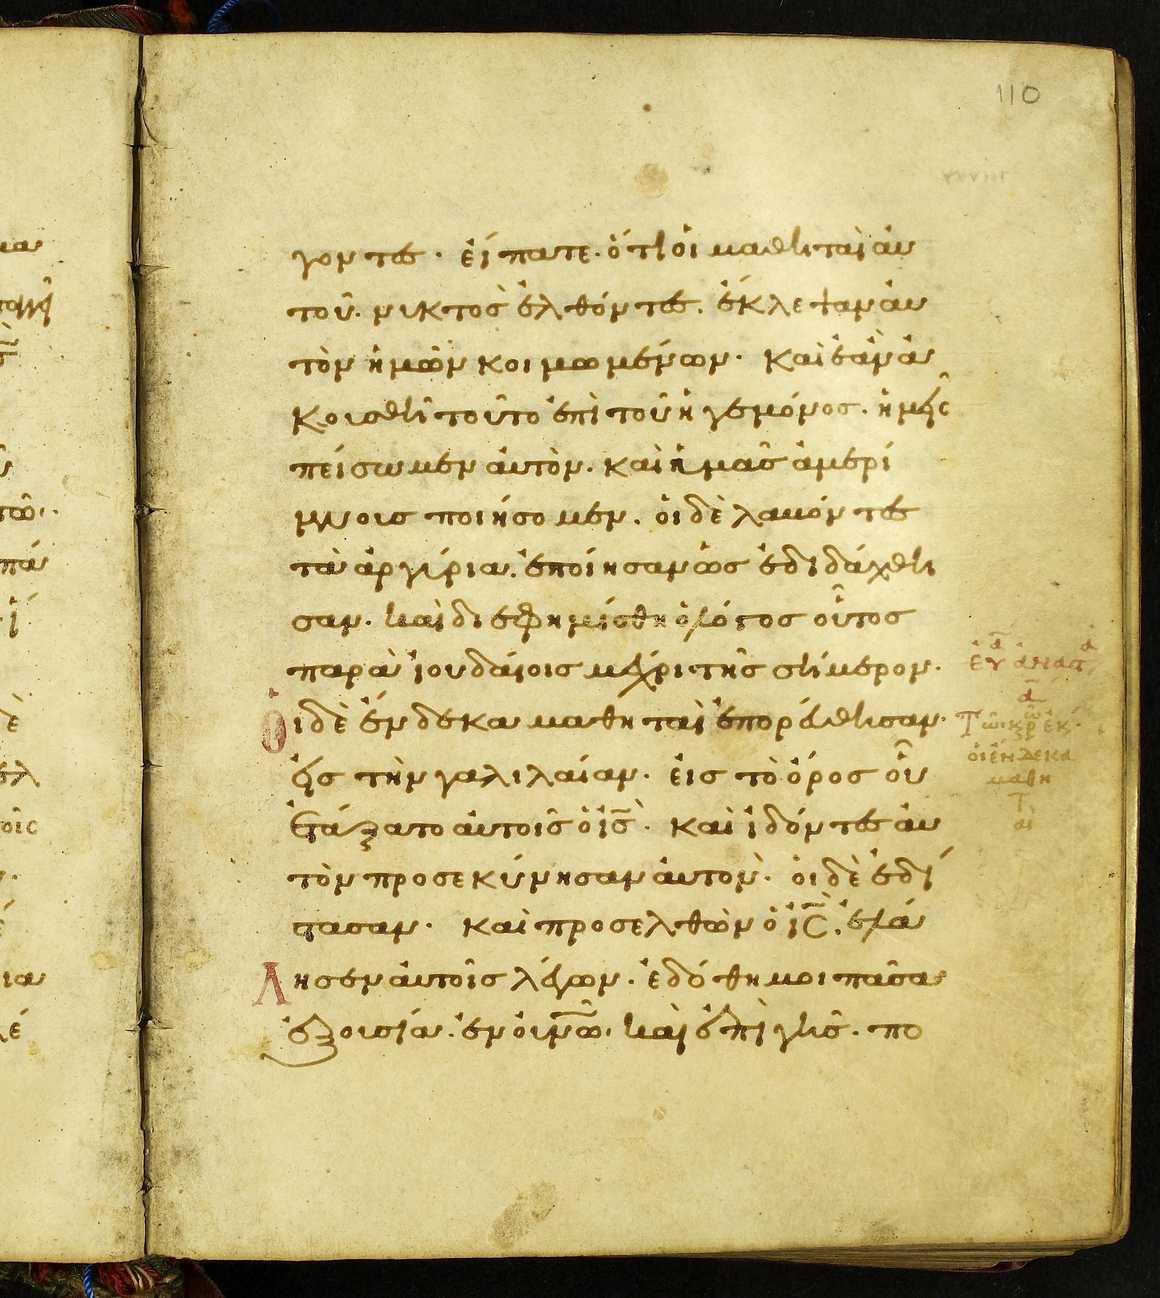 110
γοντες· εἴπατε· ὅτι οἱ μαθηταὶ ἀυ
τοῦ. νυκτὸς ἐλθόντες. ἔκλεψαν ἀυ
τὸν ἡμῶν κοιμωμένων· καὶ ἐὰν ἀ
κουσθῆ τοῦτο ἐπὶ τοῦ ἡγεμόνος. ἡμεῖς
πείσωμεν ἀυτὸν. καὶ ἡμᾶς ἀμερί
μνους ποιήσομεν. ὁι δὲ λαβόντες
τὰ ἀργύρια. ἐποίησαν ὡς ἐδιδάχθη
σαν. καὶ διεφημίσθη ὁ λόγος οὗτος
παρὰ ἰουδαίοις μέχρι τῆς σήμερον.
Ὁι δὲ ἕνδεκα μαθηταὶ ἐπορεύθησαν·
εἰς τὴν γαλιλαίαν. ἐις τὸ ὄρος οὗ
ἐτάξατο ἀυτοῖς ὁ ις· καὶ ἰδόντες ἀυ
τὸν προσεκύνησαν ἀυτὸν. ὁι δὲ ἐδί
στασαν· καὶ προσελθὼν ὁ ις, ἐλά
λησεν ἀυτοῖς λέγων. ἐδόθη μοι πᾶσα
ἐξουσία. ἐν ουνω. καὶ ἐπὶ γῆς. πο
οἱ ἕνδεκα
μαθη
τ
αὶ